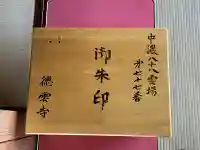 中濃八十八霊場
第七十七番
御朱印
德雲寺